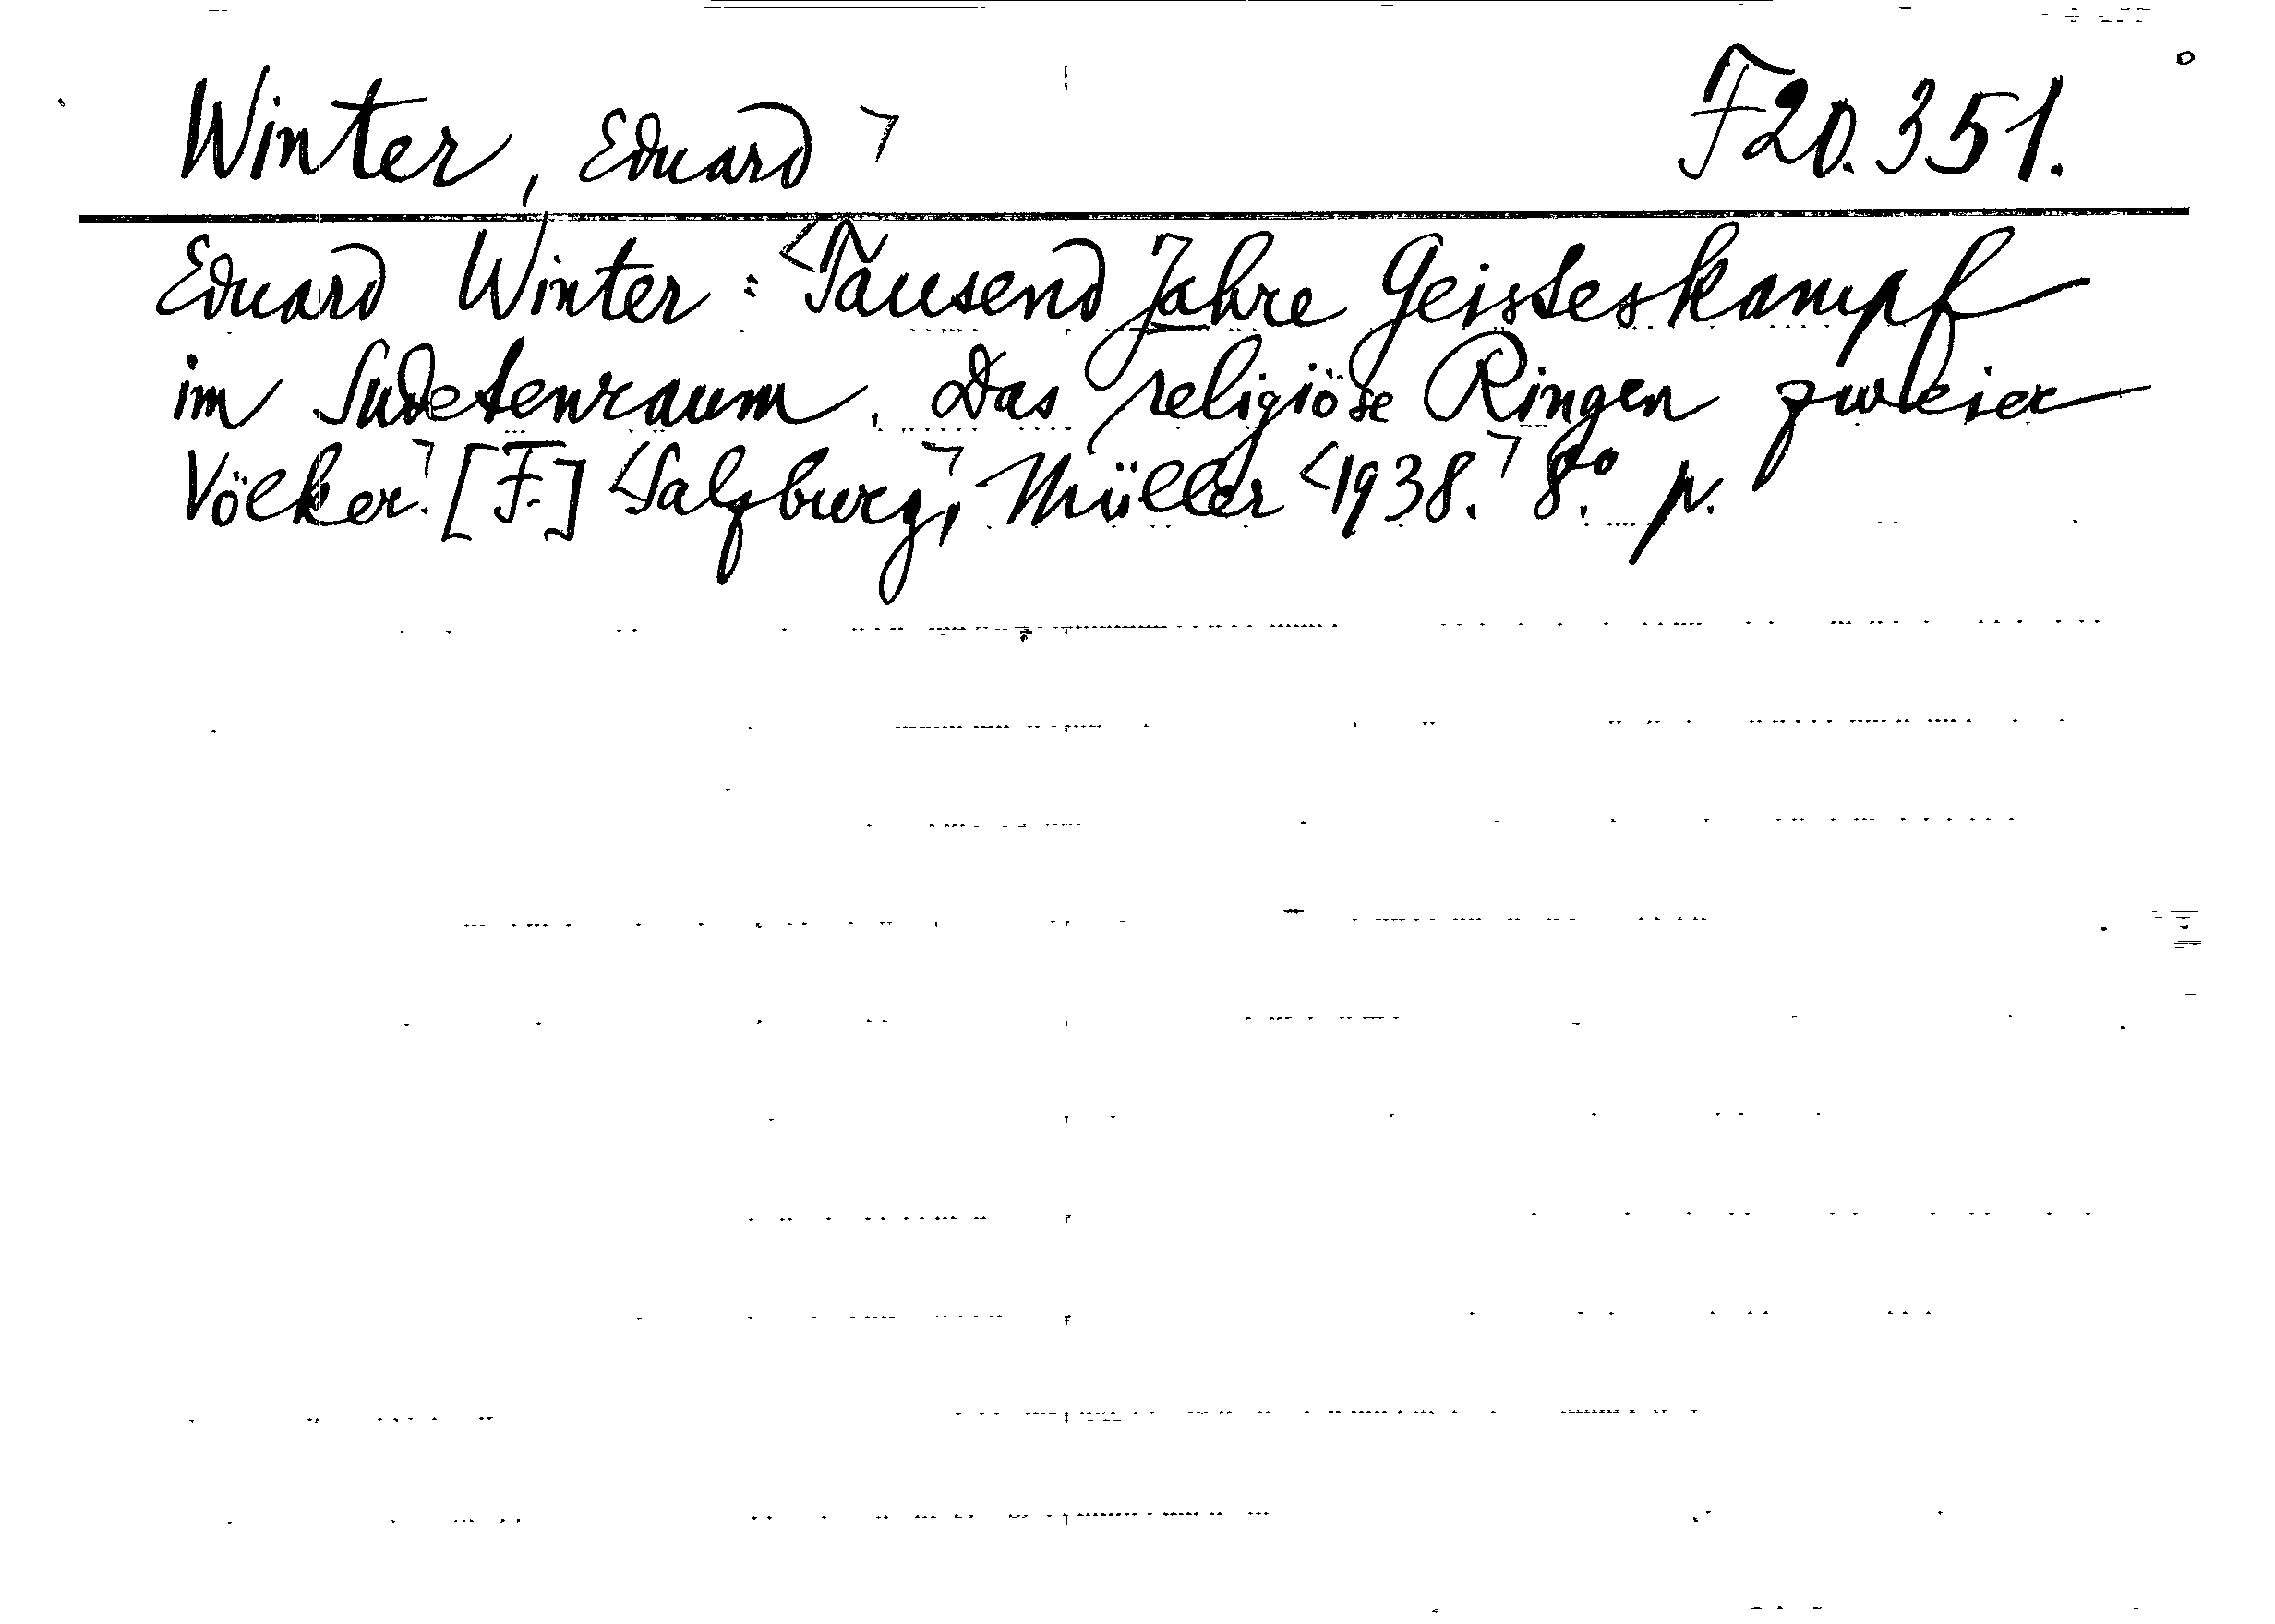 Winter, Eduard ┐ F20.351.
Eduard Winter: <Tausend Jahre Geisteskampf
im Sudetenraum. Das religiöse Ringen zweier
Völker.┐ [F.] <Salzburg,┐ Müller <1938.┐ 8.° p.